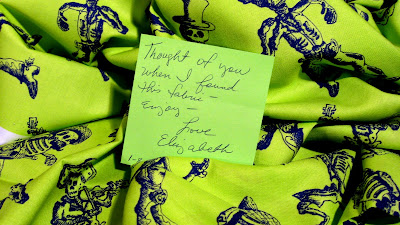 Thought of you
when I found
this fabric -
Enjoy -
Love
Elizabeth